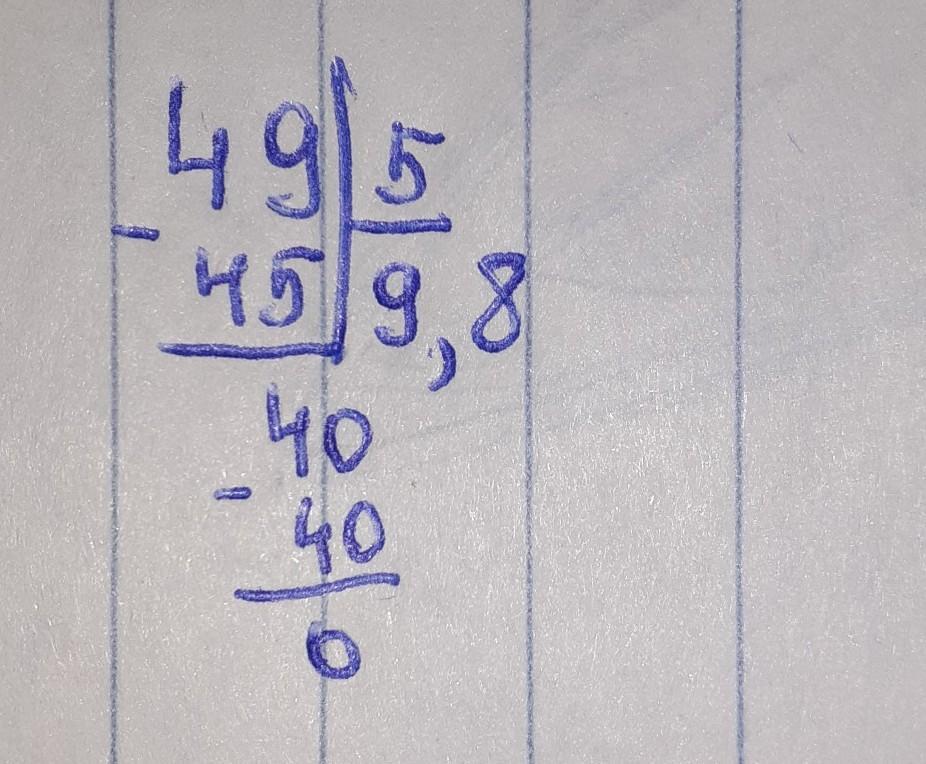 49 | 5
- 45 | 9,8
40
- 40
0